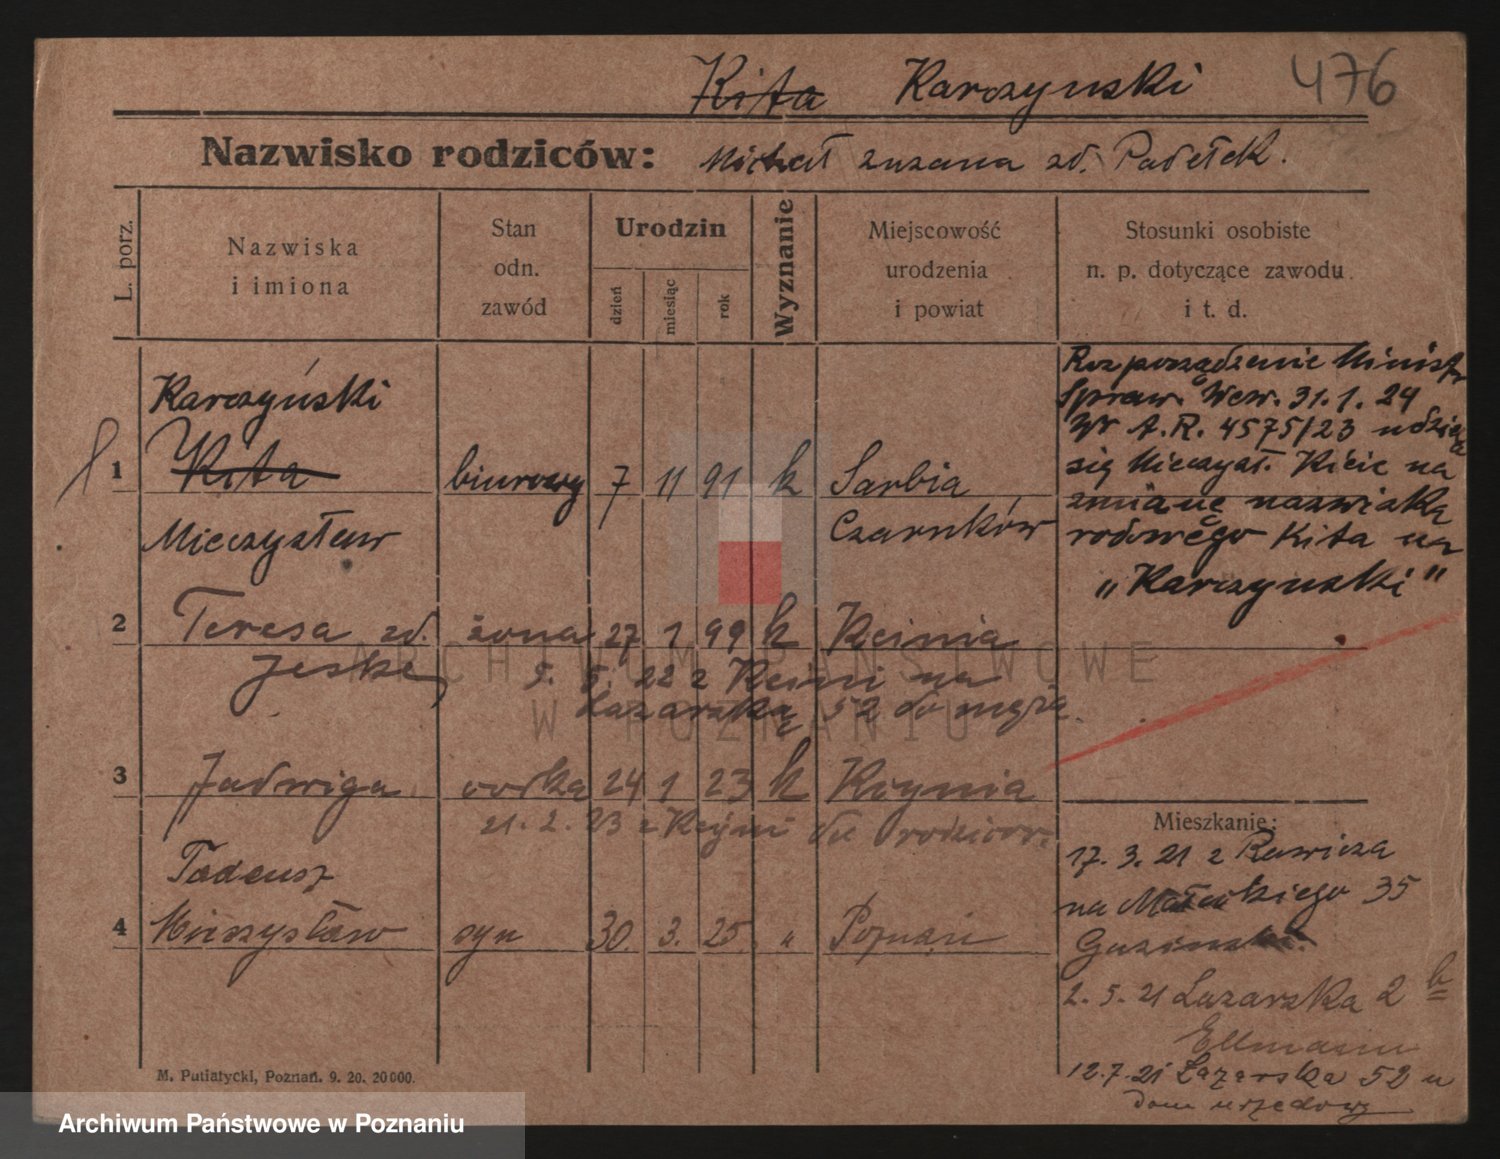 Kita Karczynski 476
Nazwisko rodziców: Michał Zuzana zd. Padełek.
L. porz.
Nazwiska
i imiona
Stan
odn.
zawód
Urodzin
dzień
miesiąc
rok
Wyznanie
Miejscowość
urodzenia
i powiat
Stosunki osobiste
n. p. dotyczące zawodu
i t. d.
Karczyński
1 Kita biurowy 7 11 91 k Sarbia
Mieczysław Czarnków
Rozporządzenie Ministr
Spraw. Wew. 31.1.24
Nr A.R. 4575/23 udziela
się Mieczysł. Kicie na
zmianę nazwiska
rodowego Kita na
"Karczynski"
2 Teresa zd. żona 27 1 99 k Kcinia
Jeske, 5. 5. 22 z Kcini na
Łazarską 52 do męża
3 Jadwiga córka 24 1 23 k Kcynia
21. 2. 23 z Kcyni do rodziców.
Tadeusz
4 Mieczysław syn 30. 3. 25 " Poznań
Mieszkanie:
17. 3. 21 z Rawicza
na Małeckiego 35
2. 5. 21 Łazarska 2 b
Ellmann
12.7.21 Łazarska 52 u
dom urzędowy
M. Putiatycki, Poznań. 9. 20. 20000.
ARCHIWUM PAŃSTWOWE
W POZNANIU
Archiwum Państwowe w Poznaniu